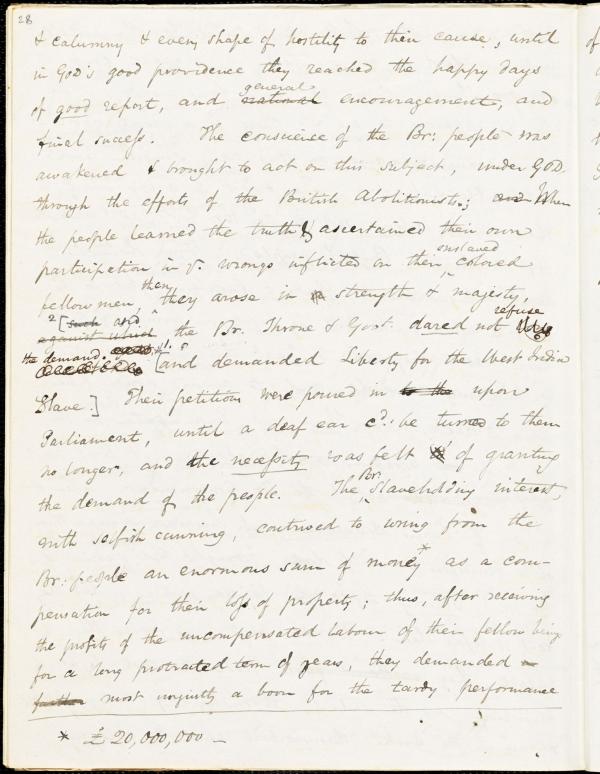 28
& calumny & every shape of hostility to their cause, until
in GOD's good providence they reached the happy days
general
of good report, and national encouragement, and
final success. The conscience of the Br: people was
awakened & brought to act on this subject, under GOD,
through the efforts of the British Abolitionists.; and When
the people learned the truth & ascertained their own
enslaved
participation in ye. wrongs inflicted on their colored
then
fellow men, they arose in strength & majesty,
2 [such and refuse
against which the Br. Throne & Govt. dared not
the demand. 1. [and demanded Liberty for the West India
Slave.] Their petitions were poured in to the upon
Parliament, until a deaf ear cd. be turned to them
no longer, and the necessity was felt of granting
Br.
the demand of the people. The Slaveholding interest,
with selfish cunning, contrived to wring from the
Br: people an enormous sum of money * as a com-
pensation for their loss of property; thus, after receiving
the profits of the uncompensated labour of their fellow beings
for a long protracted term of years, they demanded
further most unjustly a boon for the tardy performance
* £20,000,000 —